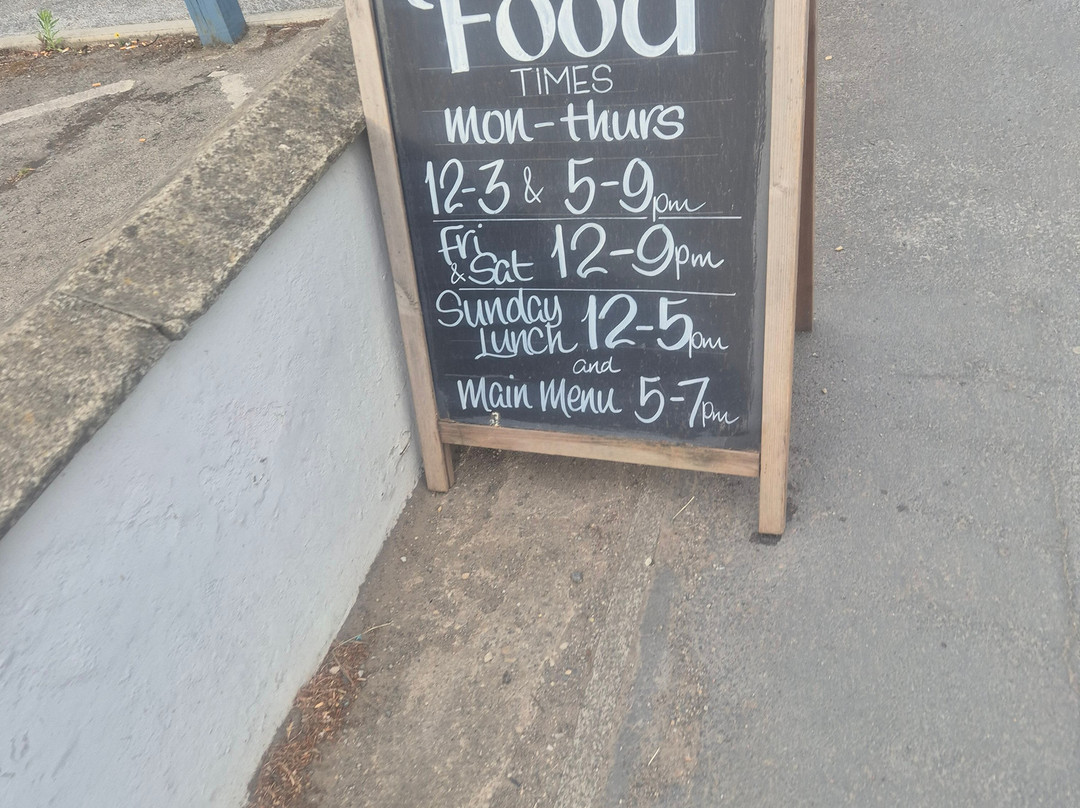 Food
TIMES
Mon-Thurs
12-3 & 5-9pm
Fri
& Sat 12-9pm
Sunday
Lunch 12-5pm
and
Main Menu 5-7pm